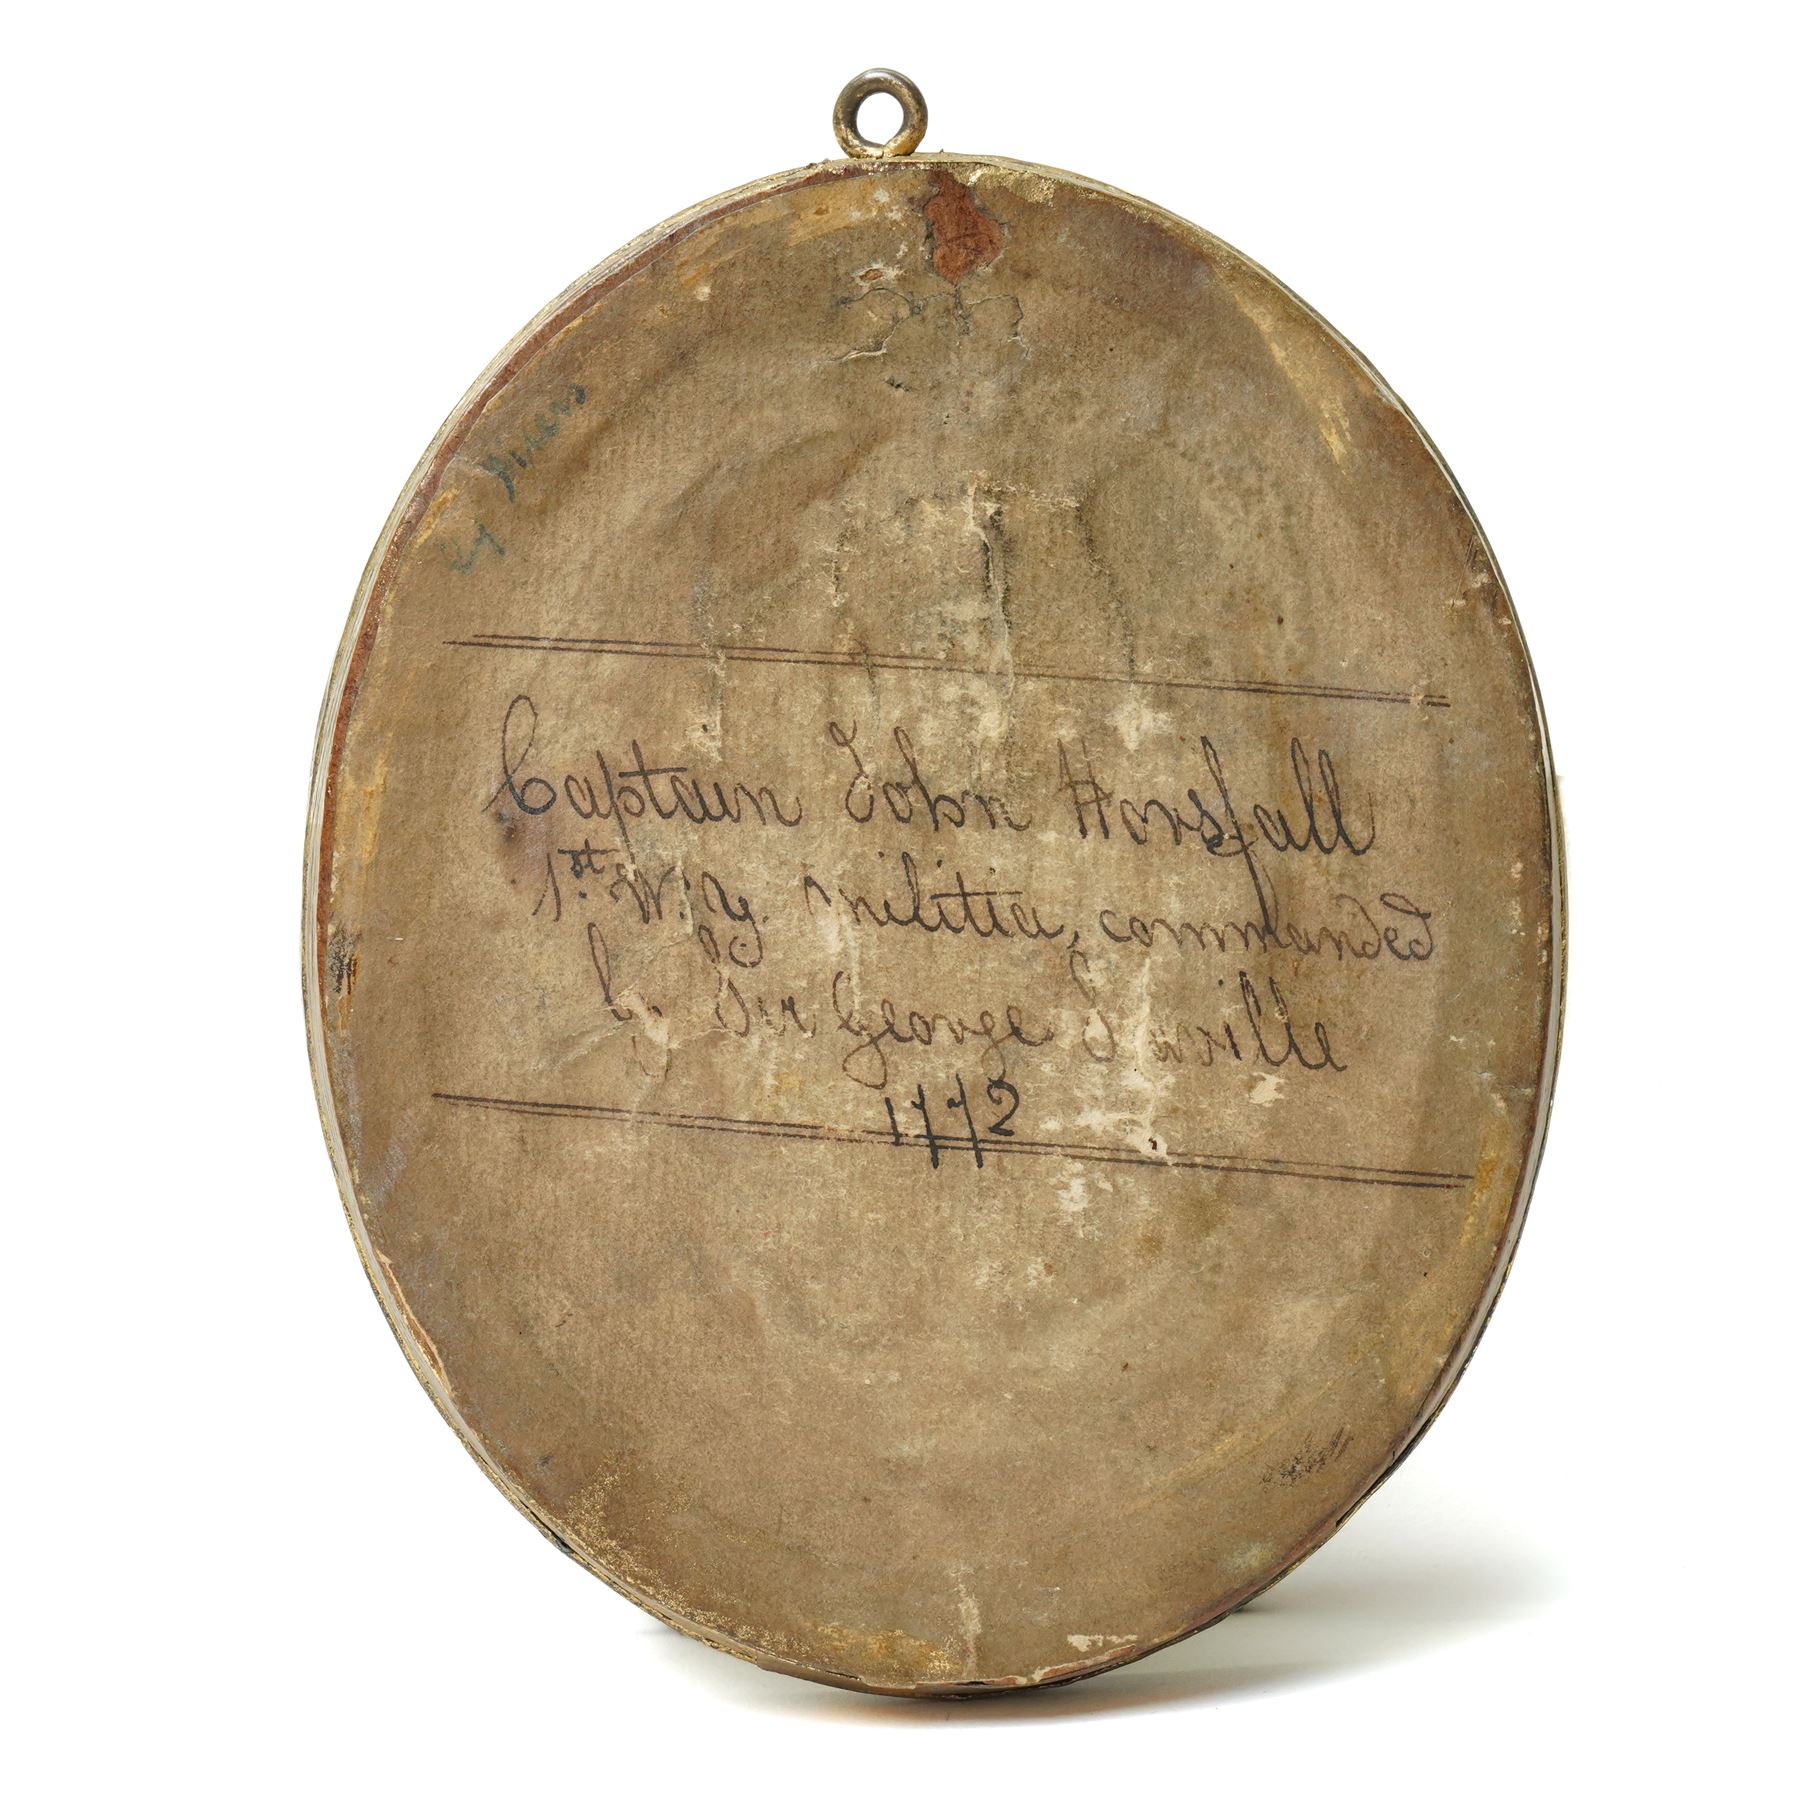 Captain John Horsfall
1st. W. Y. Militia, commanded
by Sir George Saville
1772